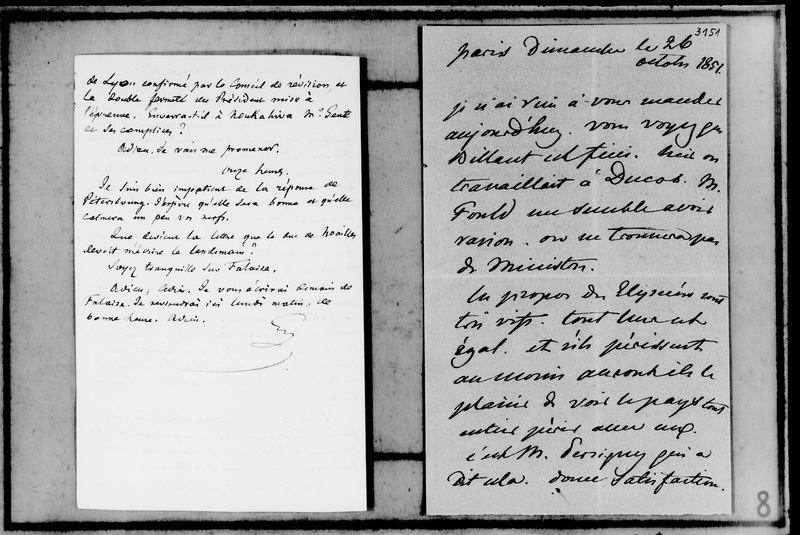 de Lyon confirmé par le Conseil de révision, et
la double fermeté du Président mise à
l'épreuve. Enverra-t-il à Noukahiva Mr. Gent
et ses complices ?
Adieu. Je vais me promener.
Onze heures.
Je suis bien impatient de la réponse de
Pétersbourg. J'espère qu'elle sera bonne et qu'elle
calmera un peu vos nerfs.
Que devient la lettre que le duc de Noailles
devait m'écrire le lendemain ?
Soyez tranquille sur Falaise.
Adieu, Adieu. Je vous écrirai demain de
Falaise. Je reviendrai ici lundi matin, de
bonne heure. Adieu.
3151
paris Dimanche le 26
octobre 1851.
je n'ai rien à vous mander
aujourd'huy. vous voyez que
Billaut est fini. hier on
travaillait à Ducos. M.
Fould me semble avoir
raison. on ne trouvera pas
de Ministres.
les propos des Elyséens sont
très vifs. tout leur est
égal. et s'ils périssent
au moins auront ils le
plaisir de voir le pays tout
entier périr avec eux.
c'est M. Persigny qui a
dit cela. douce satisfaction.
8